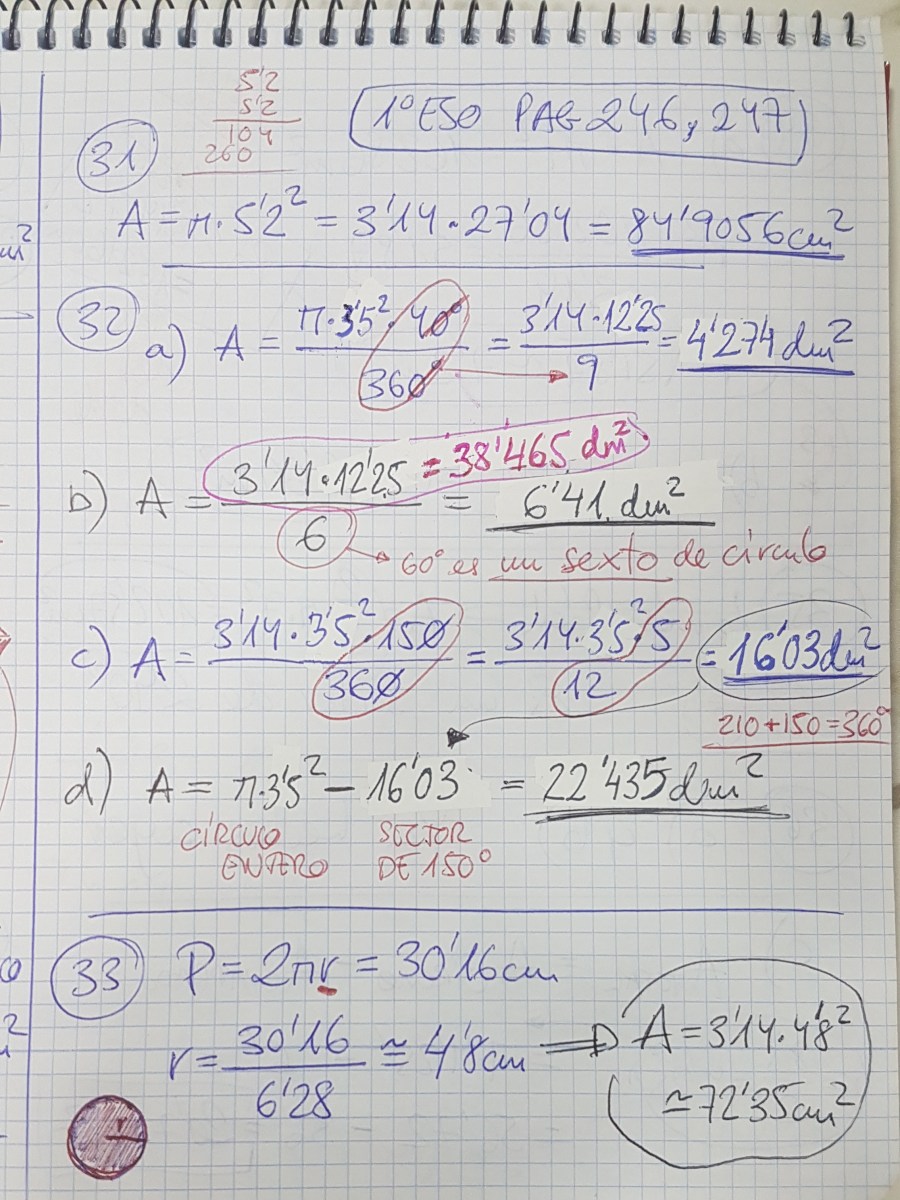 5'2
5'2
104
260
1º ESO PAG 246, 247
31
A = π · 5'2² = 3'14 · 27'04 = 84'9056 cm²
32
a) A = π · 3'5² · 40° / 360° = 3'14 · 12'25 / 9 = 4'274 dm²
b) A = 3'14 · 12'25 = 38'465 dm² / 6 = 6'41 dm²
60° es un sexto de círculo
c) A = 3'14 · 3'5² · 150 / 360 = 3'14 · 3'5² · 5 / 12 = 16'03 dm²
210 + 150 = 360°
d) A = π · 3'5² - 16'03 = 22'435 dm²
CÍRCULO SECTOR
ENTERO DE 150°
33 P = 2πr = 30'16 cm
r = 30'16 / 6'28 ≅ 4'8 cm ⇒ A = 3'14 · 4'8²
≃ 72'35 cm²